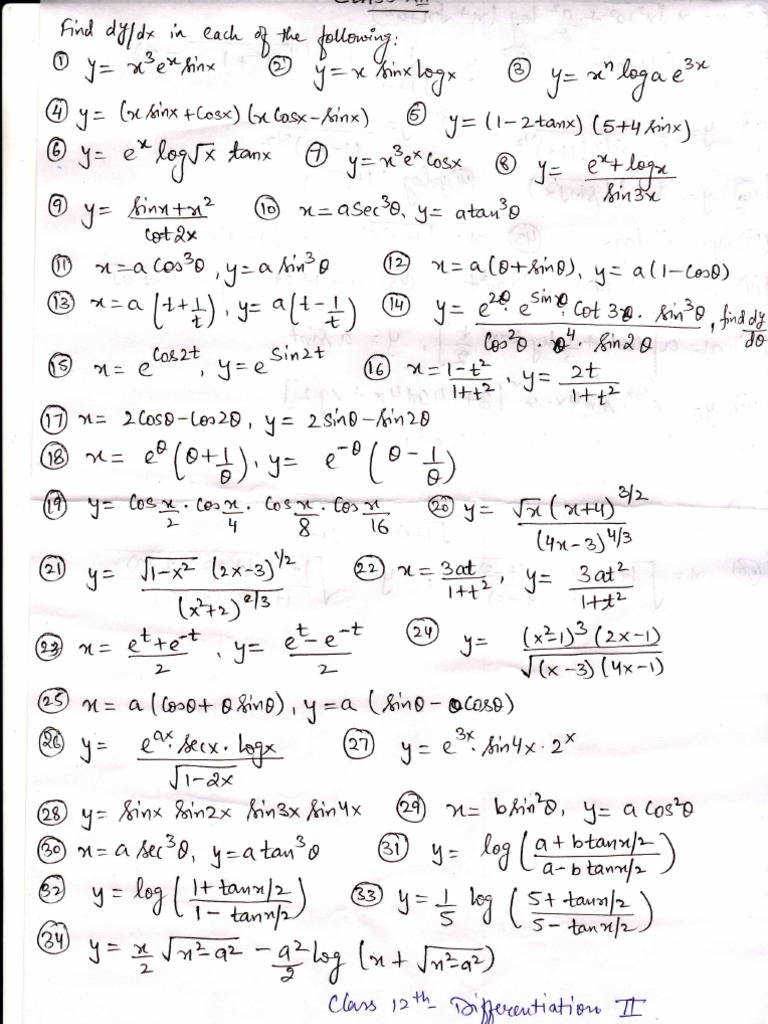 Find dy/dx in each of the following:
① y = x³eˣ sinx ② y = x sinx logx ③ y = xⁿ loga e³ˣ
④ y = (x sinx + cosx) (x cosx - sinx) ⑤ y = (1-2tanx) (5+4 sinx)
⑥ y = eˣ log√x tanx ⑦ y = x³eˣ cosx ⑧ y = (eˣ + logx) / sin3x
⑨ y = (sinx + x²) / cot2x ⑩ x = a sec³θ, y = atan³θ
⑪ x = a cos³θ, y = a sin³θ ⑫ x = a(θ+sinθ), y = a(1-cosθ)
⑬ x = a (t + 1/t), y = a(t - 1/t) ⑭ y = (e²θ · e^sinθ · cot 3θ · sin³θ) / (cos²θ · θ⁴ · sin2θ), find dy/dθ
⑮ x = e^cos2t, y = e^sin2t ⑯ x = (1-t²)/(1+t²), y = 2t/(1+t²)
⑰ x = 2cosθ - cos2θ, y = 2sinθ - sin2θ
⑱ x = e^θ (θ + 1/θ), y = e^-θ (θ - 1/θ)
⑲ y = cos x/2 · cos x/4 · cos x/8 · cos x/16 ⑳ y = √x (x+4)^3/2 / (4x-3)^4/3
㉑ y = √1-x² (2x-3)^1/2 / (x²+2)^2/3 ㉒ x = 3at/(1+t²), y = 3at²/(1+t²)
㉓ x = (e^t + e^-t)/2, y = (e^t - e^-t)/2 ㉔ y = (x²-1)³ (2x-1) / √(x-3) (4x-1)
㉕ x = a(cosθ + θ sinθ), y = a (sinθ - θcosθ)
㉖ y = e^ax · secx · logx / √1-2x ㉗ y = e^3x · sin4x · 2ˣ
㉘ y = sinx sin2x sin3x sin4x ㉙ x = bsin²θ, y = a cos²θ
㉚ x = a sec³θ, y = a tan³θ ㉛ y = log ( (a + b tanx/2) / (a - b tanx/2) )
㉜ y = log ( (1 + tanx/2) / (1 - tanx/2) ) ㉝ y = 1/5 log ( (5 + tanx/2) / (5 - tanx/2) )
㉞ y = x/2 √x²-a² - a²/2 log (x + √x²-a²)
Class 12th - Differentiation II